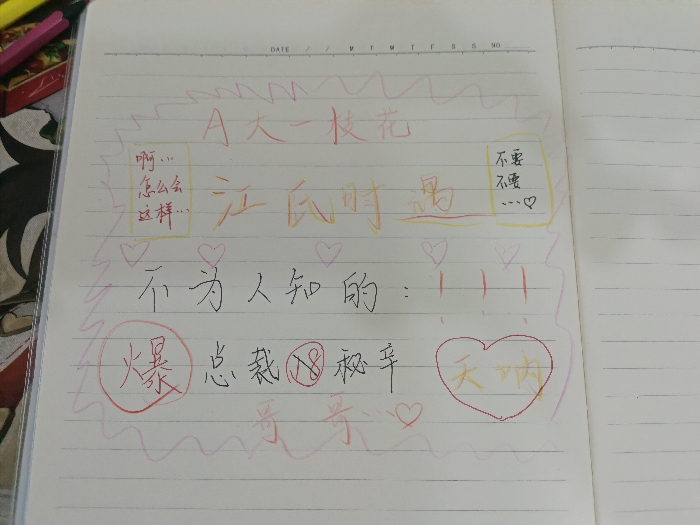 DATE / / M T W T F S S NO.
A大一枝花
啊…
怎么会
这样…
江氏时遇
不要
不要
…♡
不为人知的：！！！
爆 总裁 18 秘辛 天呐
哥哥…♡